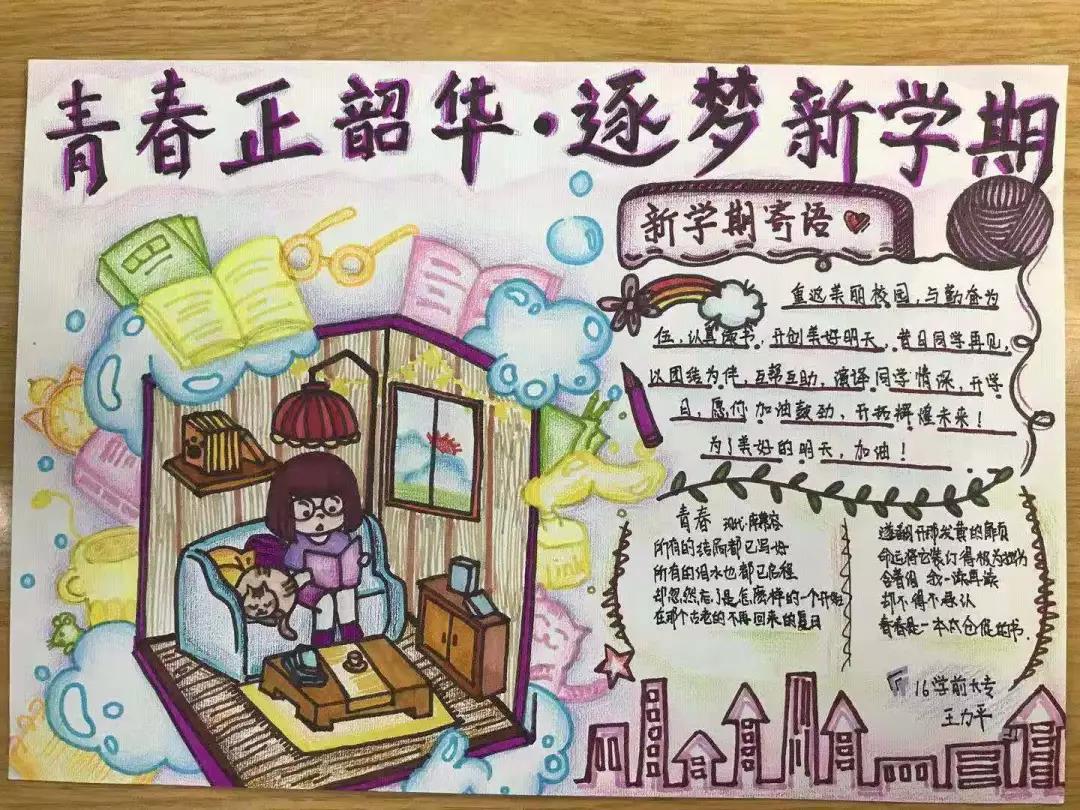 青春正韶华·逐梦新学期
新学期寄语
重返美丽校园,与勤奋为
伍,认真读书,开创美好明天,昔日同学再见,
以团结为伴,互帮互助,演译同学情深,开学
日,愿你加油鼓劲,开拓辉煌未来!
为了美好的明天,加油!
青春 现代·席慕容
所有的结局都已写好
所有的泪水也都已启程
却忽然忘了是怎么样的一个开始
在那个古老的不再回来的夏日
透翻开那发黄的扉页
命运将它装订得极为拙劣
含着泪 我一读再读
却不得不承认
青春是一本太仓促的书.
16学前大专
王力平